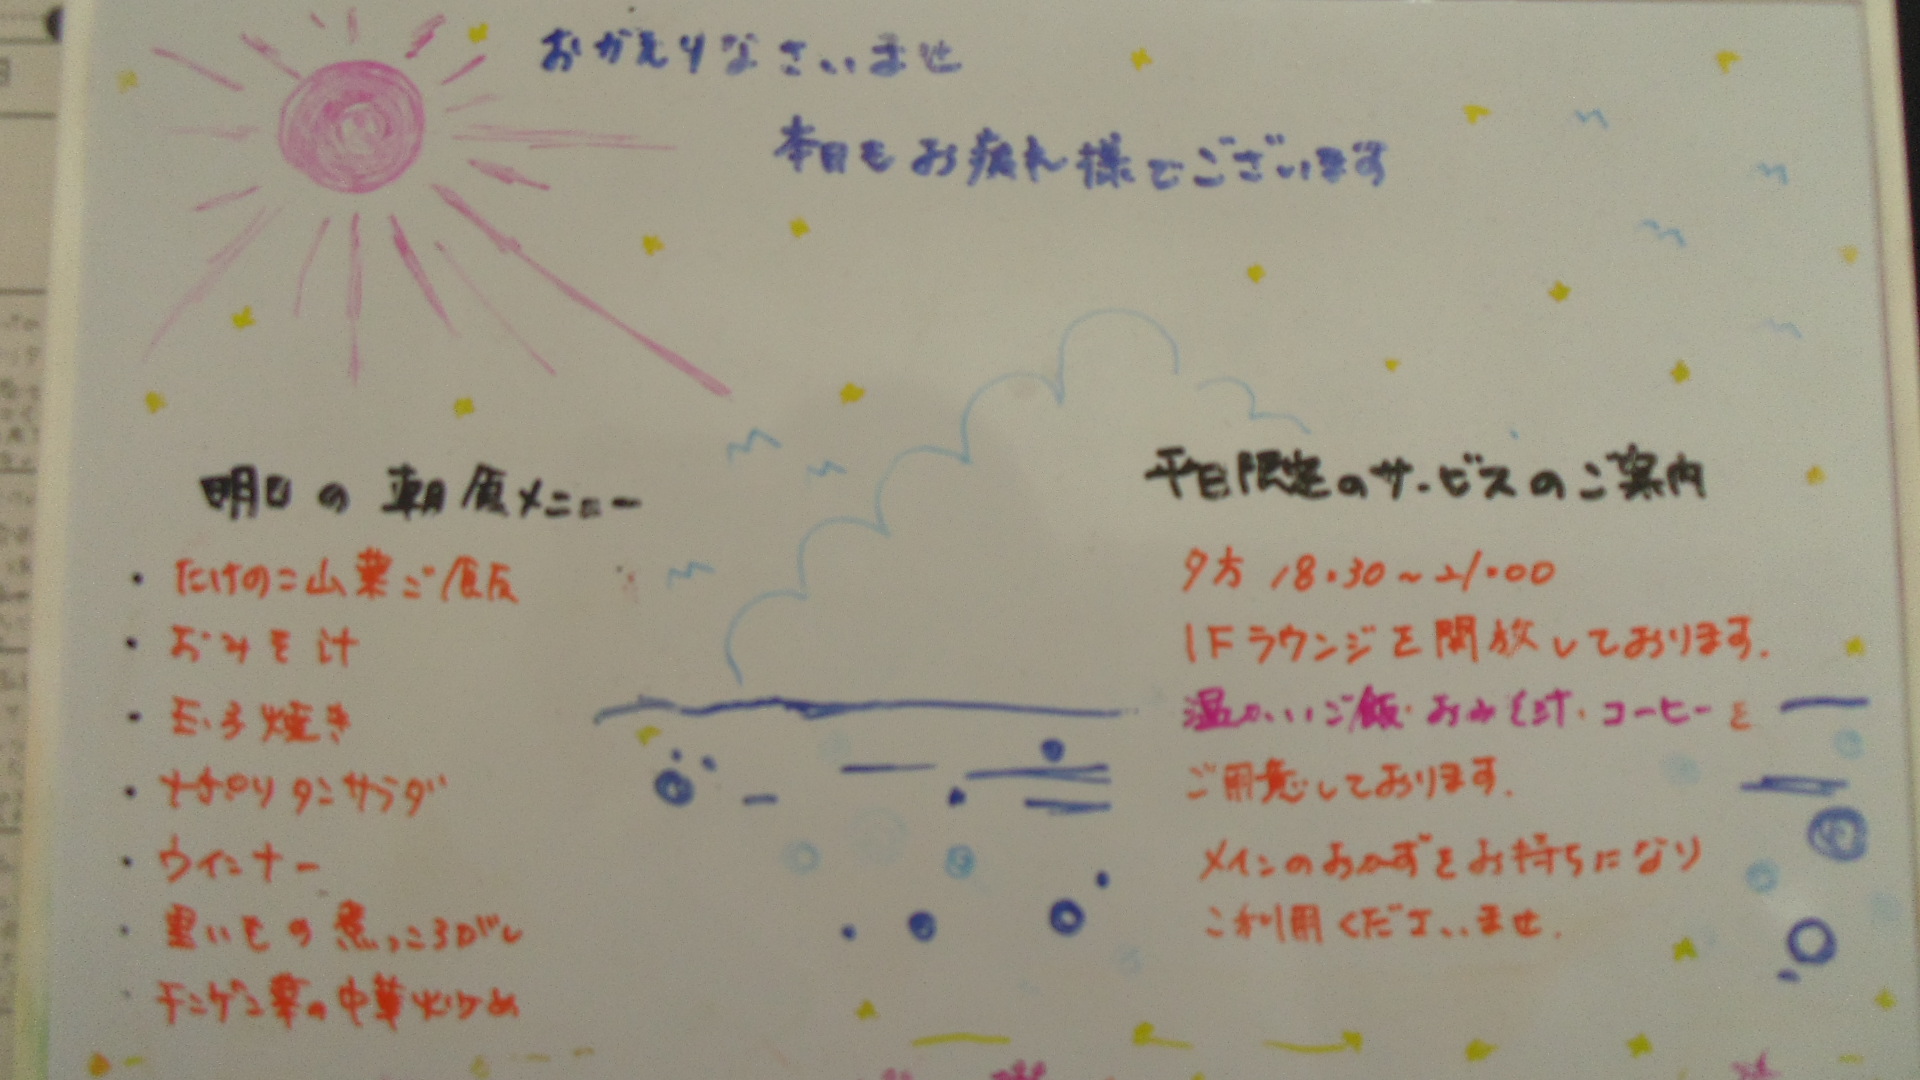 おかえりなさいませ
本日もお疲れ様でございます
明日の朝食メニュー
・たけのこ山菜ご飯
・おみそ汁
・玉子焼き
・ナポリタンサラダ
・ウインナー
・里いもの煮っころがし
・チンゲン菜の中華炒め
平日限定のサービスのご案内
夕方 18:30~21:00
1Fラウンジを開放しております.
温かいご飯・おみそ汁・コーヒーを
ご用意しております.
メインのおかずをお持ちになり
ご利用くださいませ.